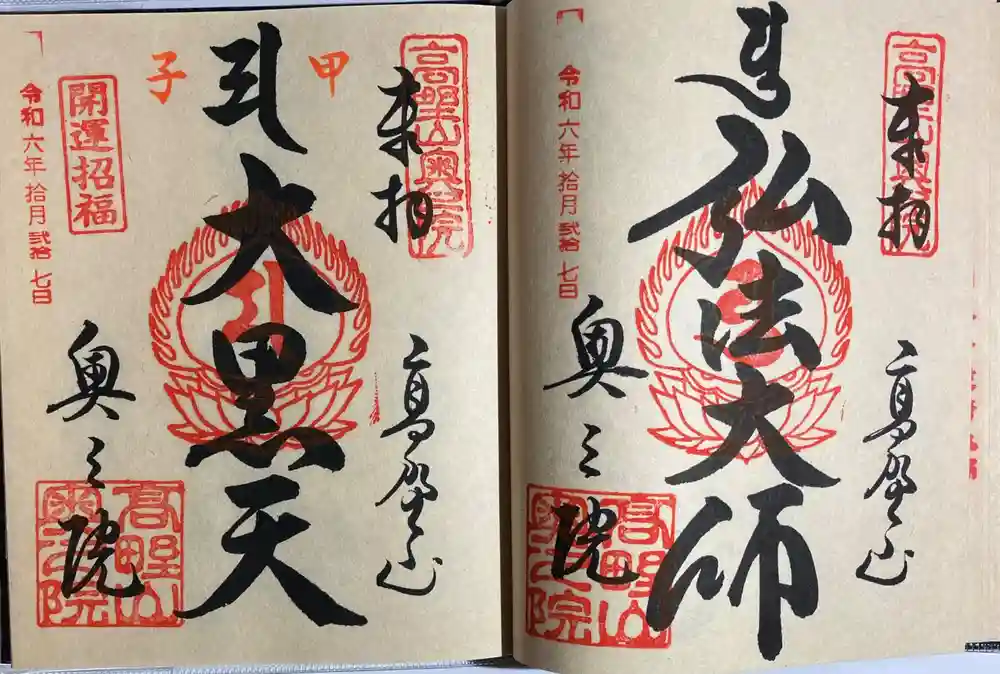 高野山奥之院
奉拝
高野山
弘法大師
奥之院
高野山
奥之院
令和六年拾月弐拾七日
高野山奥之院
奉拝
高野山
甲
大黒天
子
開運招福
奥之院
高野山
奥之院
令和六年拾月弐拾七日